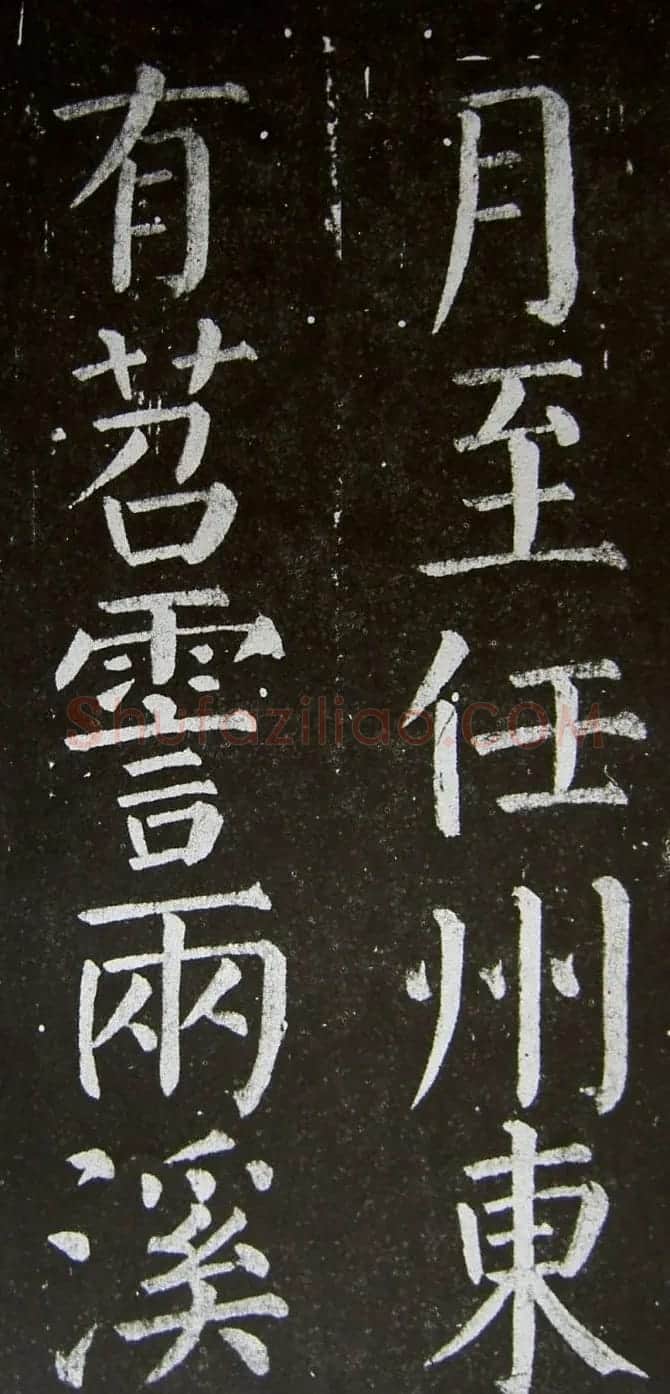 月至任州東
有苕霅兩溪
Shufaziliao.COM